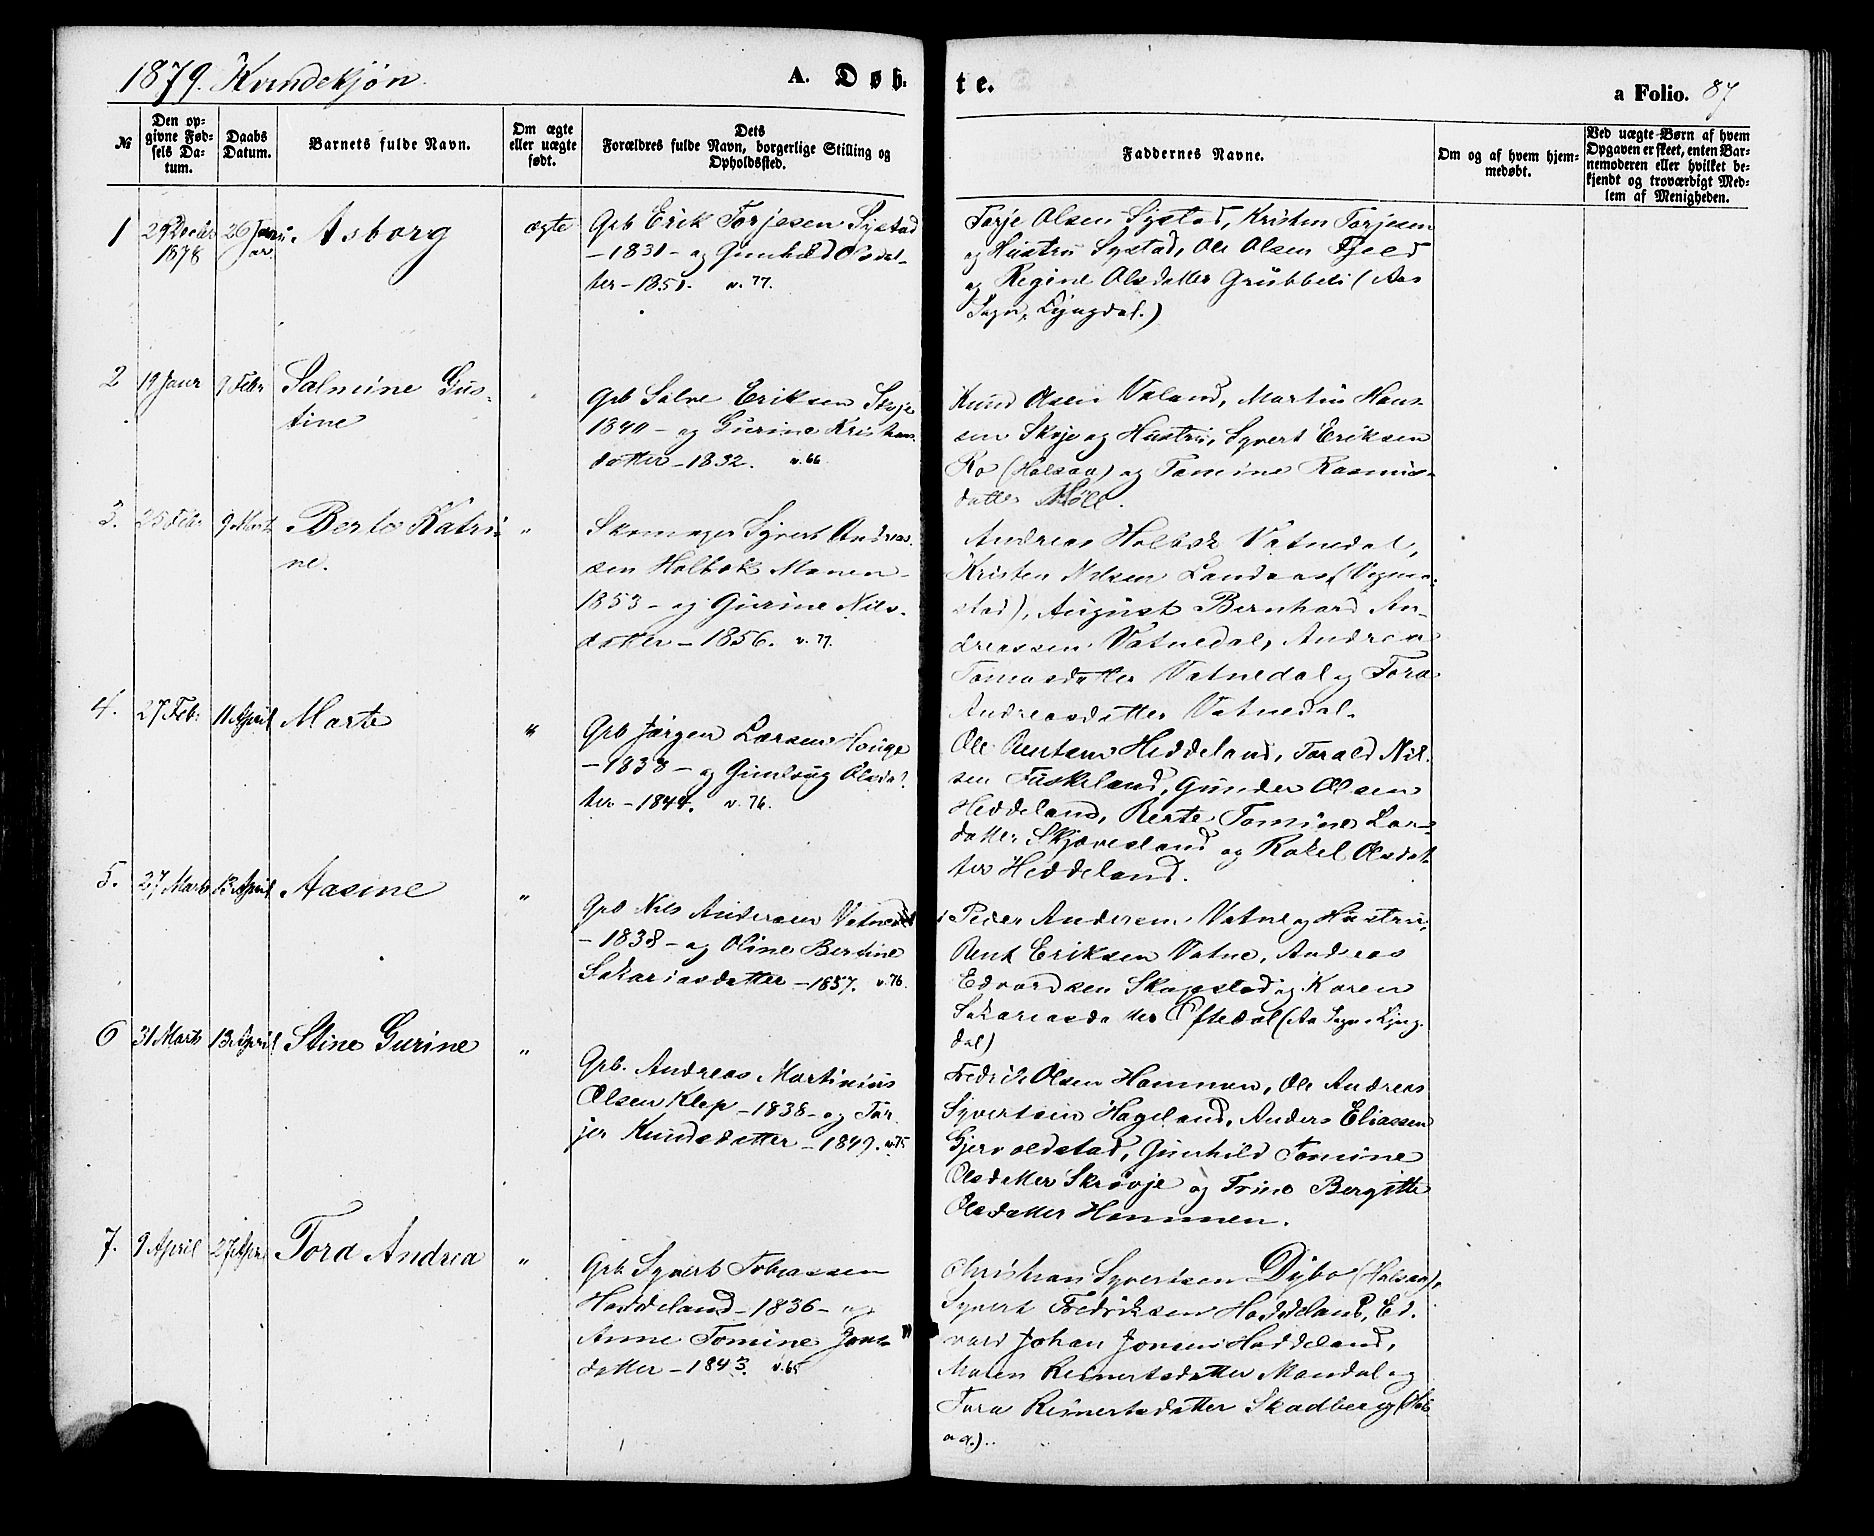 1879. Kvindekjøn.
A. Døbte.
a Folio. 87
№
Den op-
givne Fød-
sels Da-
tum.
Daabs
Datum.
Barnets fulde Navn.
Om ægte
eller uægte
født.
Dets
Forældres fulde Navn, borgerlige Stilling og
Opholdssted.
Faddernes Navne.
Om og af hvem hjem-
medøbt.
Ved uægte Børn af hvem
Opgaven er skeet, enten Bar-
nemoderen eller hvilket be-
kjendt og troværdigt Med-
lem af Menigheden.
1
29 Decbr
1878
26 Janu
ar
Asborg
ægte
Grb Erik Torjesen Systad
- 1831 - og Gunhild Olsdat-
ter - 1851. v. 77.
Torje Olsen Systad, Kristen Torjesen
og Hustru Systad, Ole Olsen Fjeld
og Regine Olsdatter Grubbeli (Aas
Sogn, Lyngdal.)
2
19 Janr
9 Febr
Salmine Gus-
tine
"
Grb Salve Eriksen
1840 - og Gurine Kristens
datter - 1832. v. 66
Knud Olsen Valand, Martin Han-
sen Skøje og Hustru, Syvert Eriksen
Ro (Halsaa) og Tomine Rasmus-
datter Møll.
3.
25 Febr
9 Marts
Berte Katri-
ne.
"
Skomager Syvert Andreas-
sen Holbæk Monen -
1853 - og Gurine Nils-
datter - 1856. v. 77.
Andreas Holbæk Vatnedal,
Kristen Nilsen Landaas (Vigmo-
stad), August Bernhard An-
dreassen Vatnedal, Andrea
Tomasdatter Vatnedal og Tora
Andreasdatter Vatnedal.
4.
27 Feb.
11 April
Marte
"
Grb Jørgen Larsen Houge
- 1838 - og Gunloug Olsdat
ter - 1844. v. 76.
Ole Bentsen Heddeland, Torald Nil-
sen Fuskeland, Gunder Olsen
Heddeland, Berte Tomine Lars
datter Skjævesland og Rakel Olsdat-
ter Heddeland.
5.
27 Marts
13 April
Aasine
"
Grb Nils Andersen Vatnedal
- 1838 - og Oline Bertine
Sakariasdatter - 1857. v. 76.
Peder Andersen Vatne og Hustru,
Bent Eriksen Vatne, Andreas
Edvardsen Skagestad og Karen
Sakariasdatter Oftedal (Aa Sogn Lyng-
dal)
6
31 Marts
13 April
Stine Gurine
"
Grb. Andreas Martinius
Olsen Klep - 1838 - og Tor-
jer Knudsdatter - 1849. v. 75
Fedrik Olsen Hommen, Ole Andreas
Syvertsen Hageland, Anders Eliassen
Gjervoldstad, Gunhild Tomine
Olsdatter Skrøvje og Trine Bergitte
Olsdatter Hommen.
7.
9 April
27 Apr.
Tora Andrea
"
Grb Syvert Tobiassen
Haddeland - 1836 - og
Anne Tomine Jons-
datter - 1843. v. 65
Christian Syvertsen Dybo (Halsaa),
Syvert Fredriksen Haddeland, Ed-
vard Johan Jonsen Haddeland,
Maren Reinertsdatter Mandal og
Tora Reinertsdatter Skadberg (Hals
aa.)..